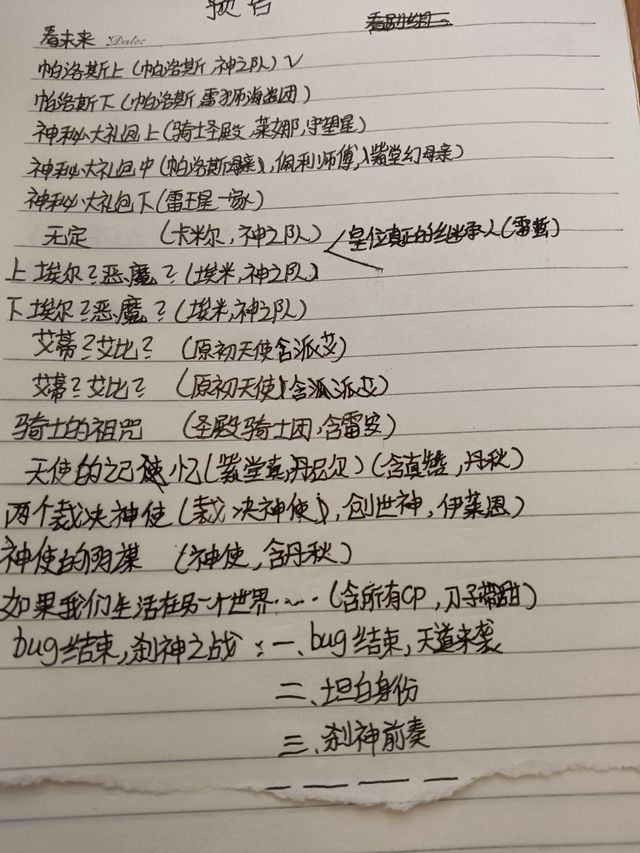 预告
看未来 Date:
帕洛斯上(帕洛斯,神之队)√
帕洛斯下(帕洛斯,雷狮海盗团)
神秘大礼包上(骑士圣殿,莱娜,守望星)
神秘大礼包中(帕洛斯母亲),佩利师傅,)紫堂幻母亲)
神秘大礼包下(雷王星一家)
无定 (卡米尔,神之队) 皇位真正的继承人(雷蛰)
上埃尔?恶魔?(埃米,神之队)
下埃尔?恶魔?(埃米,神之队)
艾蒂?艾比? (原初天使含派艾)
艾蒂?艾比? (原初天使)含派艾)
骑士的祖咒 (圣殿骑士团,含雷安)
天使的记忆(紫堂真,丹尼尔)(含真赞,丹秋)
两个裁决神使(裁决神使),创世神,伊莱恩)
神使的阴谋 (神使,含丹秋)
如果我们生活在另一个世界……(含所有CP,刀子带甜)
bug结束,刹神之战:一、bug结束,天道来袭
二、坦白身份
三、刹神前奏